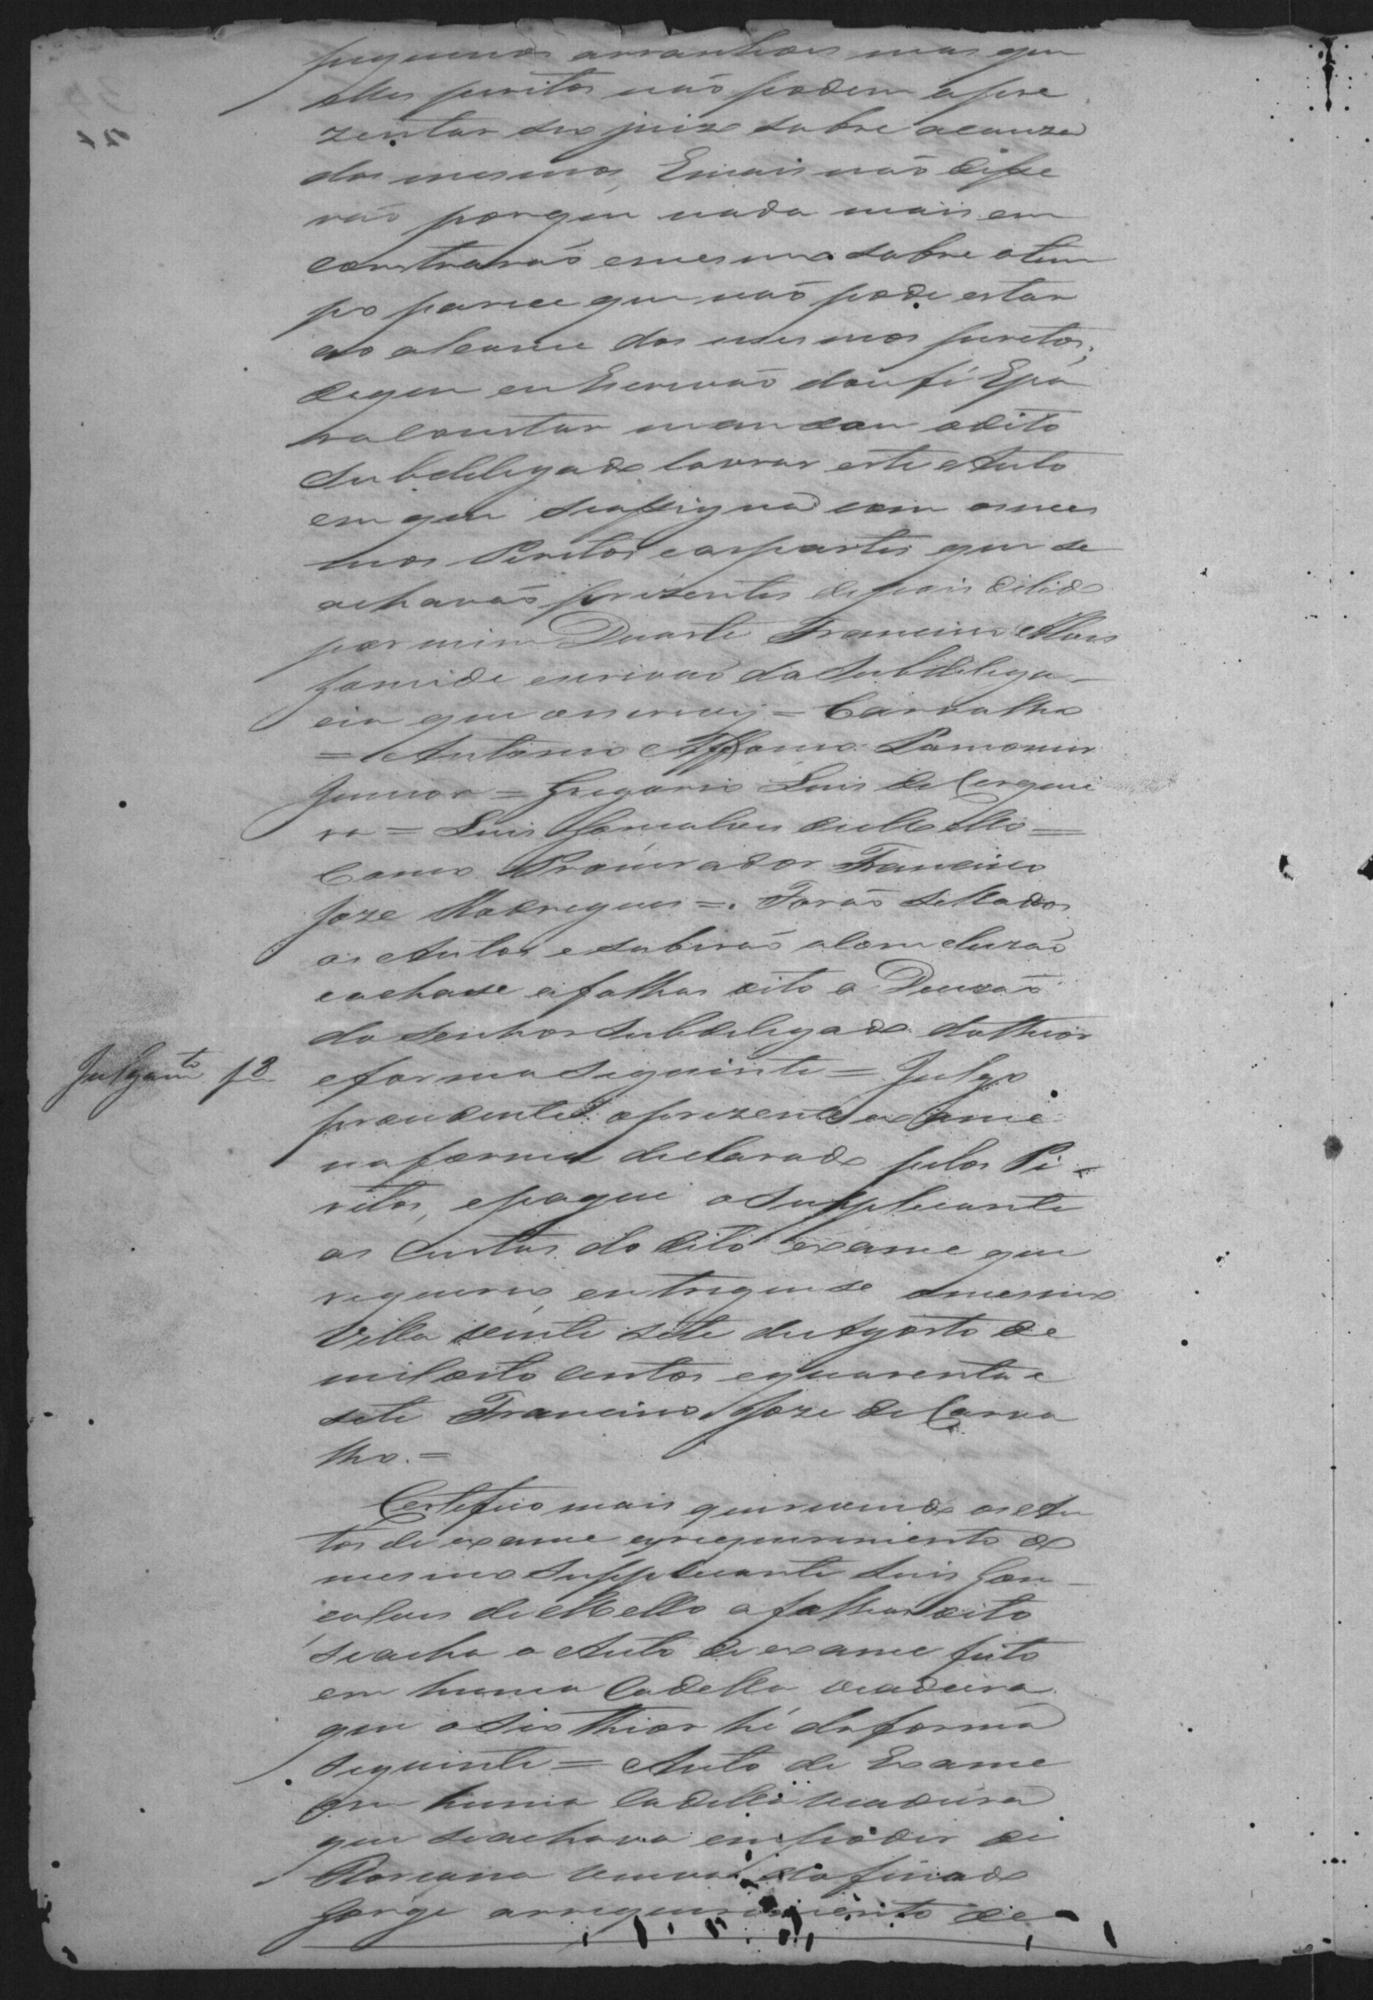 pequenos arranhois mas que
elles peritos não podem apre
zentar seo juizo sobre acauza
dos mesmos, Emais não disse
rão porque nada mais em
contrarão emesmo sobre otem
po parece que não pode estar
ao alcance dos mesmos peritos;
deque eu Escrivão dou fé Epa
raconstar mandou odito
Subdelegado lavrar este Auto
em que seassignа com osmes
mos Peritos easpartes que se
achavão prezentes depois delido
por mim Duarte Francisco
escrivão da Subdelega
cia que oescrevy = Carvalho
= Antonio Affonso
Junior = Gregorio Luis de Cerquei
ra = Luis Gonsalves de Mello =
Como Procurador Francisco
Joze Rodrigues =. Forão Sellados
os Autos esubirão aconcluzão
eachase afolhas oito a Decizão
do Senhor Subdelegado dotheor
eforma Seguinte = Julgo
Julgamto
procedente oprezente exame
naforma declarado pelos Pe
ritos, epague oSupplicante
as Custas do dito exame que
requereo, entreguese omesmo
Villa vinte sete de Agosto de
mil oito centos equarenta e
sete Francisco Joze de Carva
lho. =
Certefico mais que revendo os Au
tos de exame arequerimento do
mesmo Supplicante Luis Gon
calves de Mello afolhas oito
seacha o Auto de exame feito
em huma Cadella veadeira
que oSeo Theor hé daforma
seguinte = Auto de Exame
em huma Cadella veadeira
que seachava em poder de
viuva do finado
Jorge arrequerimento de